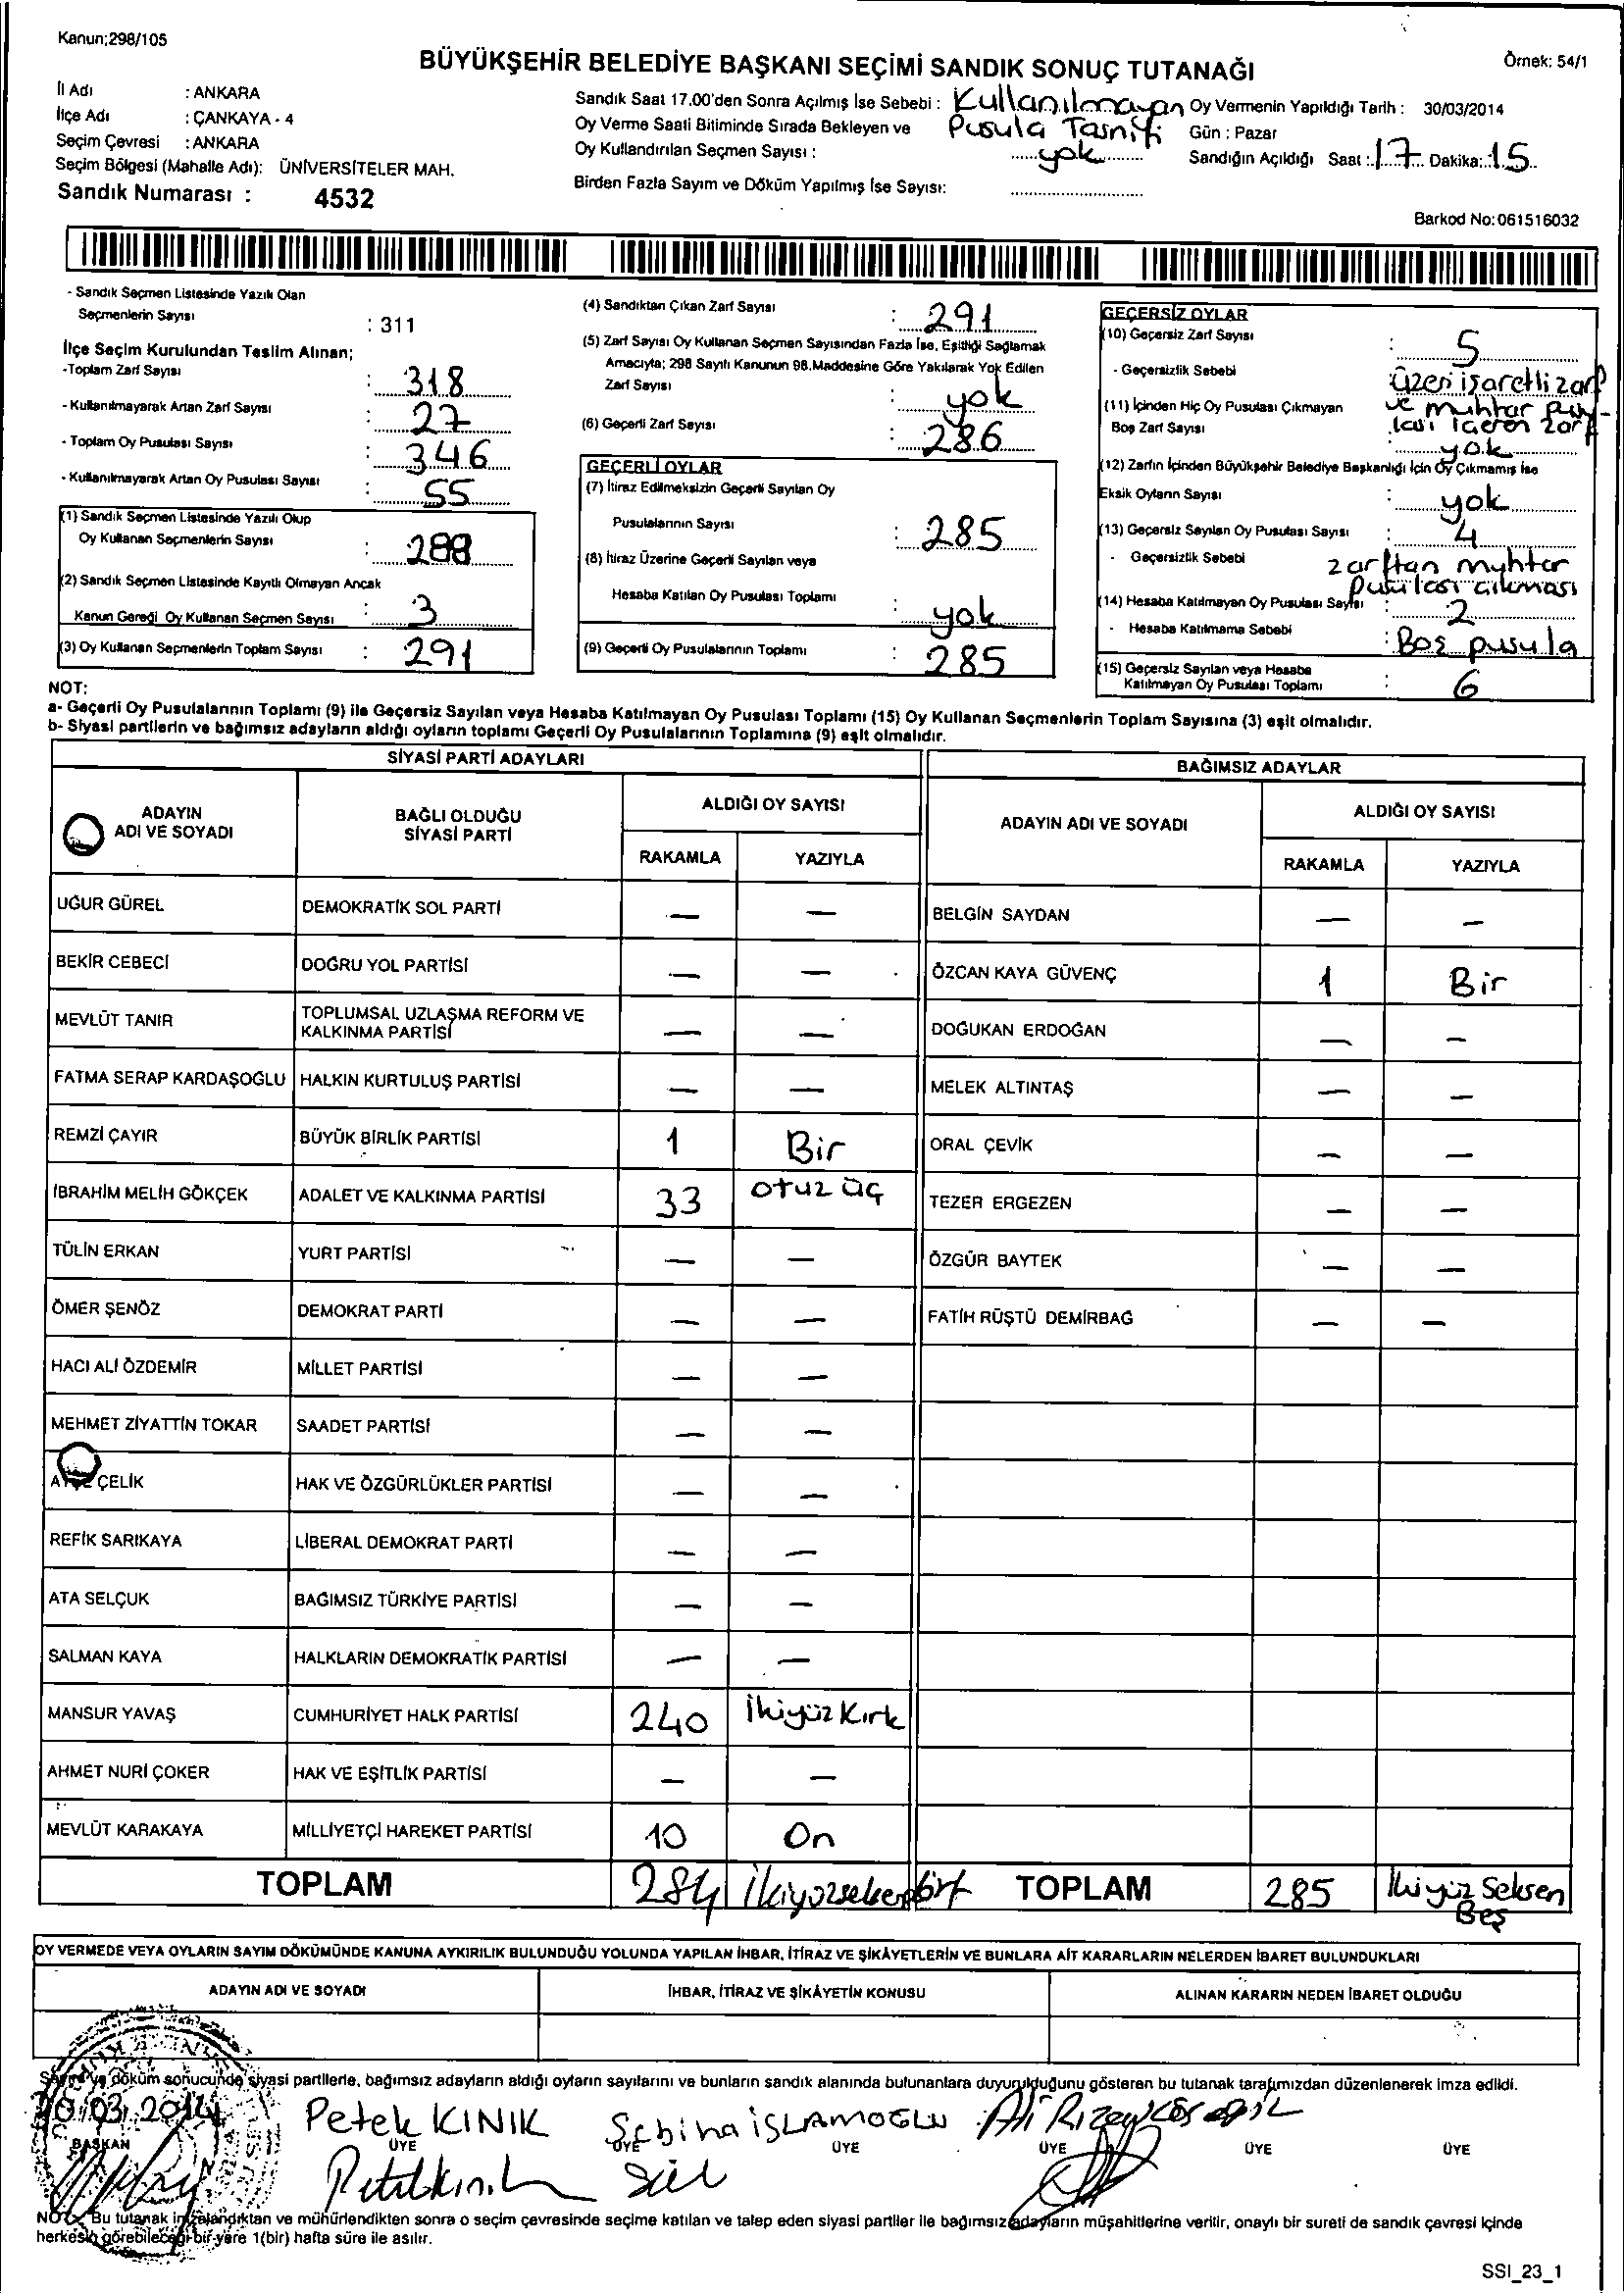 Kanun;298/105
BÜYÜKŞEHİR BELEDİYE BAŞKANI SEÇİMİ SANDIK SONUÇ TUTANAĞI
Örnek: 54/1
İl Adı : ANKARA
İlçe Adı : ÇANKAYA - 4
Seçim Çevresi : ANKARA
Seçim Bölgesi (Mahalle Adı): ÜNİVERSİTELER MAH.
Sandık Numarası : 4532
Sandık Saat 17.00'den Sonra Açılmış İse Sebebi : Kullanılmayan
Oy Verme Saati Bitiminde Sırada Bekleyen ve Pusula Tasnifi
Oy Kullandırılan Seçmen Sayısı : yok
Birden Fazla Sayım ve Döküm Yapılmış İse Sayısı:
Oy Vermenin Yapıldığı Tarih : 30/03/2014
Gün : Pazar
Sandığın Açıldığı Saat : 17 Dakika: 15
Barkod No: 061516032
- Sandık Seçmen Listesinde Yazılı Olan
Seçmenlerin Sayısı : 311
İlçe Seçim Kurulundan Teslim Alınan;
-Toplam Zarf Sayısı : 318
- Kullanılmayarak Artan Zarf Sayısı : 27
- Toplam Oy Pusulası Sayısı : 346
- Kullanılmayarak Artan Oy Pusulası Sayısı : 55
(1) Sandık Seçmen Listesinde Yazılı Olup
Oy Kullanan Seçmenlerin Sayısı : 288
(2) Sandık Seçmen Listesinde Kayıtlı Olmayan Ancak
Kanun Gereği Oy Kullanan Seçmen Sayısı : 3
(3) Oy Kullanan Seçmenlerin Toplam Sayısı : 291
(4) Sandıktan Çıkan Zarf Sayısı : 291
(5) Zarf Sayısı Oy Kullanan Seçmen Sayısından Fazla İse, Eşitliği Sağlamak
Amacıyla; 298 Sayılı Kanunun 98.Maddesine Göre Yakılarak Yok Edilen
Zarf Sayısı : yok
(6) Geçerli Zarf Sayısı : 286
GEÇERLİ OYLAR
(7) İtiraz Edilmeksizin Geçerli Sayılan Oy
Pusulalarının Sayısı : 285
(8) İtiraz Üzerine Geçerli Sayılan veya
Hesaba Katılan Oy Pusulası Toplamı : yok
(9) Geçerli Oy Pusulalarının Toplamı : 285
GEÇERSİZ OYLAR
(10) Geçersiz Zarf Sayısı : 5
- Geçersizlik Sebebi : üzeri işaretli zarf
ve muhtar pusu-
lası içeren zarf
(11) İçinden Hiç Oy Pusulası Çıkmayan
Boş Zarf Sayısı : yok
(12) Zarfın İçinden Büyükşehir Belediye Başkanlığı İçin Oy Çıkmamış İse
Eksik Oyların Sayısı : yok
(13) Geçersiz Sayılan Oy Pusulası Sayısı : 4
- Geçersizlik Sebebi zarftan muhtar
pusulası çıkması
(14) Hesaba Katılmayan Oy Pusulası Sayısı : 2
- Hesaba Katılmama Sebebi : Boş pusula
(15) Geçersiz Sayılan veya Hesaba
Katılmayan Oy Pusulası Toplamı : 6
NOT:
a- Geçerli Oy Pusulalarının Toplamı (9) ile Geçersiz Sayılan veya Hesaba Katılmayan Oy Pusulası Toplamı (15) Oy Kullanan Seçmenlerin Toplam Sayısına (3) eşit olmalıdır.
b- Siyasi partilerin ve bağımsız adayların aldığı oyların toplamı Geçerli Oy Pusulalarının Toplamına (9) eşit olmalıdır.
SİYASİ PARTİ ADAYLARI
ADAYIN ADI VE SOYADI BAĞLI OLDUĞU SİYASİ PARTİ ALDIĞI OY SAYISI
RAKAMLA YAZIYLA
UĞUR GÜREL DEMOKRATİK SOL PARTİ — —
BEKİR CEBECİ DOĞRU YOL PARTİSİ — —
MEVLÜT TANIR TOPLUMSAL UZLAŞMA REFORM VE KALKINMA PARTİSİ — —
FATMA SERAP KARDAŞOĞLU HALKIN KURTULUŞ PARTİSİ — —
REMZİ ÇAYIR BÜYÜK BİRLİK PARTİSİ 1 Bir
İBRAHİM MELİH GÖKÇEK ADALET VE KALKINMA PARTİSİ 33 otuz üç
TÜLİN ERKAN YURT PARTİSİ — —
ÖMER ŞENÖZ DEMOKRAT PARTİ — —
HACI ALİ ÖZDEMİR MİLLET PARTİSİ — —
MEHMET ZİYATTİN TOKAR SAADET PARTİSİ — —
ÇELİK HAK VE ÖZGÜRLÜKLER PARTİSİ — —
REFİK SARIKAYA LİBERAL DEMOKRAT PARTİ — —
ATA SELÇUK BAĞIMSIZ TÜRKİYE PARTİSİ — —
SALMAN KAYA HALKLARIN DEMOKRATİK PARTİSİ — —
MANSUR YAVAŞ CUMHURİYET HALK PARTİSİ 240 İkiyüz Kırk
AHMET NURİ ÇOKER HAK VE EŞİTLİK PARTİSİ — —
MEVLÜT KARAKAYA MİLLİYETÇİ HAREKET PARTİSİ 10 On
TOPLAM 284 İkiyüzseksendört
BAĞIMSIZ ADAYLAR
ADAYIN ADI VE SOYADI ALDIĞI OY SAYISI
RAKAMLA YAZIYLA
BELGİN SAYDAN — —
ÖZCAN KAYA GÜVENÇ 1 Bir
DOĞUKAN ERDOĞAN — —
MELEK ALTINTAŞ — —
ORAL ÇEVİK — —
TEZER ERGEZEN — —
ÖZGÜR BAYTEK — —
FATİH RÜŞTÜ DEMİRBAĞ — —
TOPLAM 285 İkiyüz Seksen
Beş
OY VERMEDE VEYA OYLARIN SAYIM DÖKÜMÜNDE KANUNA AYKIRILIK BULUNDUĞU YOLUNDA YAPILAN İHBAR, İTİRAZ VE ŞİKÂYETLERİN VE BUNLARA AİT KARARLARIN NELERDEN İBARET BULUNDUKLARI
ADAYIN ADI VE SOYADI İHBAR, İTİRAZ VE ŞİKÂYETİN KONUSU ALINAN KARARIN NEDEN İBARET OLDUĞU
Sayım ve döküm sonucunda siyasi partilerle, bağımsız adayların aldığı oyların sayılarını ve bunların sandık alanında bulunanlara duyurulduğunu gösteren bu tutanak tarafımızdan düzenlenerek imza edildi.
30.03.2014 Petek KINIK Sebiha İSLAMOĞLU Ali Rıza
BAŞKAN ÜYE ÜYE ÜYE ÜYE ÜYE ÜYE
NOT: Bu tutanak imzalandıktan ve mühürlendikten sonra o seçim çevresinde seçime katılan ve talep eden siyasi partiler ile bağımsız adayların müşahitlerine verilir, onaylı bir sureti de sandık çevresi içinde
herkesin görebileceği bir yere 1(bir) hafta süre ile asılır.
SSI_23_1